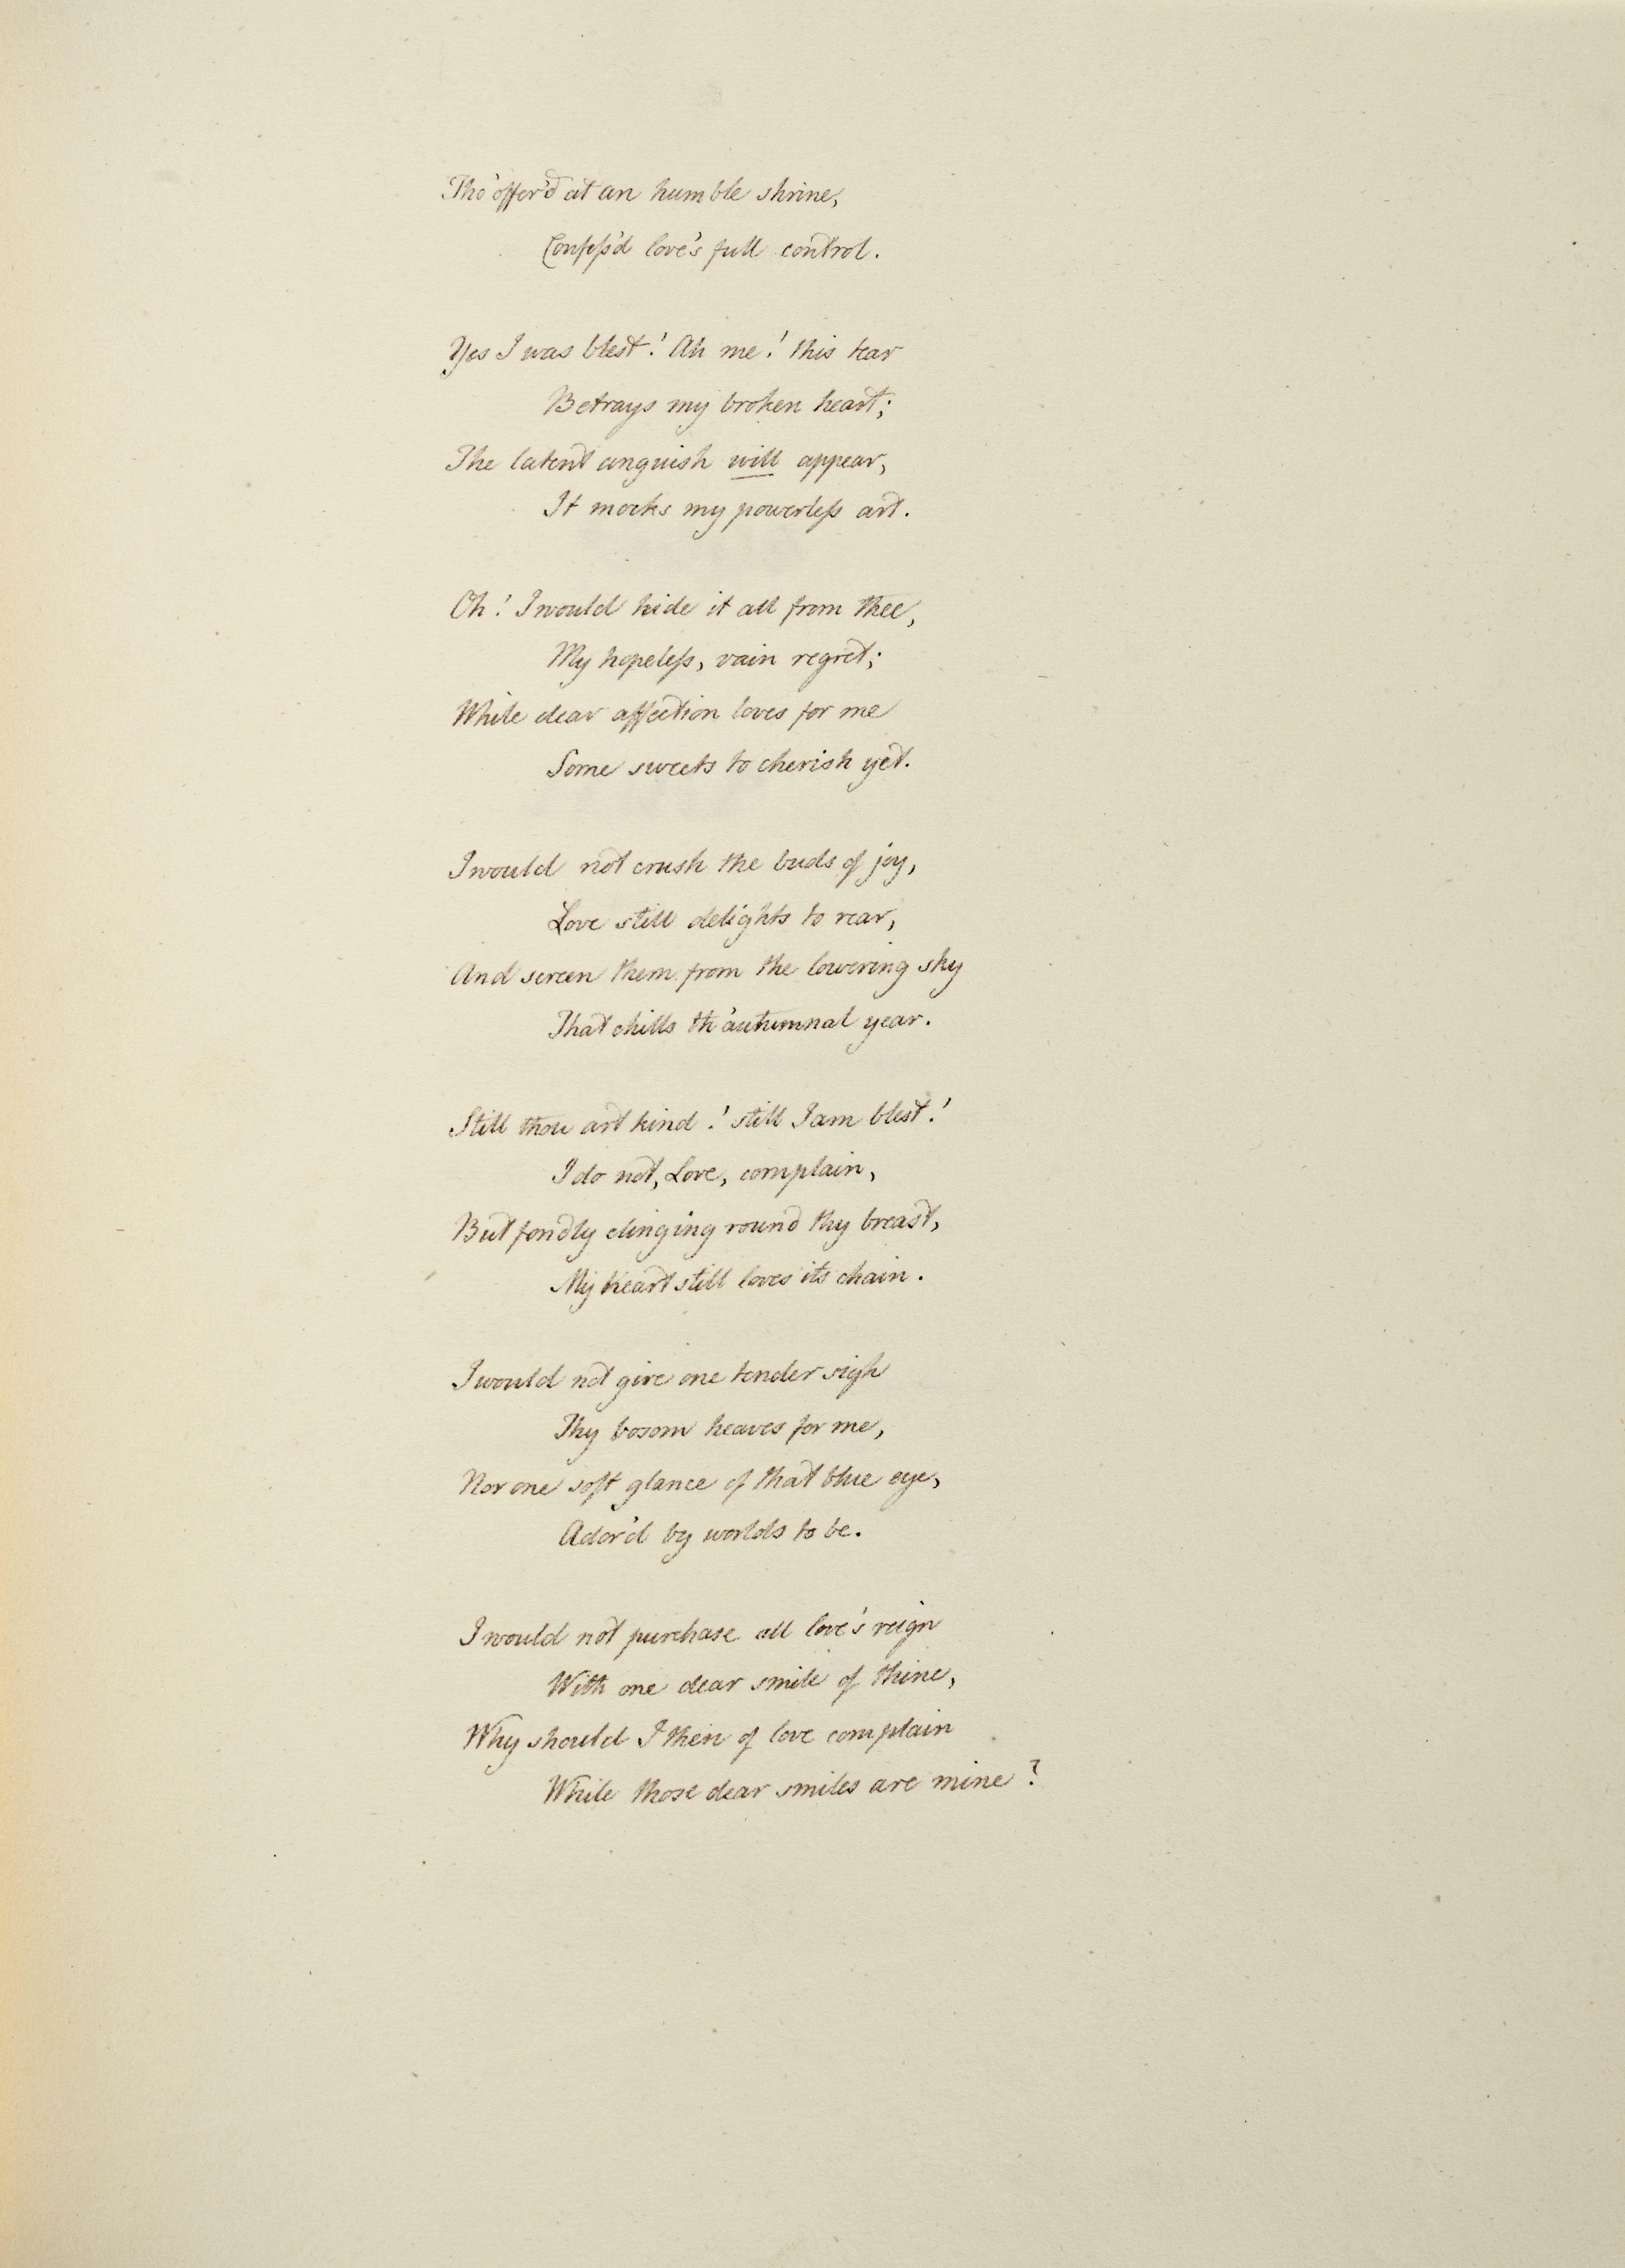 Tho' offer'd at an humble shrine,
Confeſs'd love's full control.
Yes I was blest! Ah me! this tear
Betrays my broken heart;
The latent anguish will appear,
It mocks my powerleſs art.
Oh! I would hide it all from thee,
My hopeleſs, vain regret;
While dear affection loves for me
Some sweets to cherish yet.
I would not crush the buds of joy,
Love still delights to rear,
And screen them from the lowering sky
That chills th' autumnal year.
Still thou art kind! still I am blest!
I do not, Love, complain,
But fondly clinging round thy breast,
My heart still loves its chain.
I would not give one tender sigh
Thy bosom heaves for me,
Nor one soft glance of that blue eye,
Ador'd by worlds to be.
I would not purchase all love's reign
With one dear smile of thine,
Why should I then of love complain
While those dear smiles are mine?